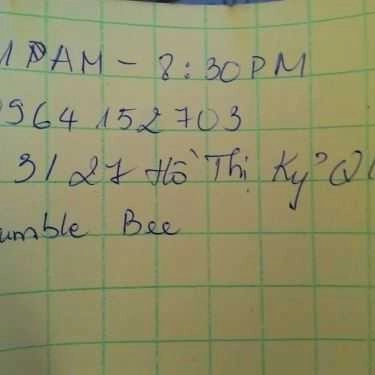 AM - 8:30PM
964 152 703
3/27 Hồ Thị Kỷ Q
umble Bee